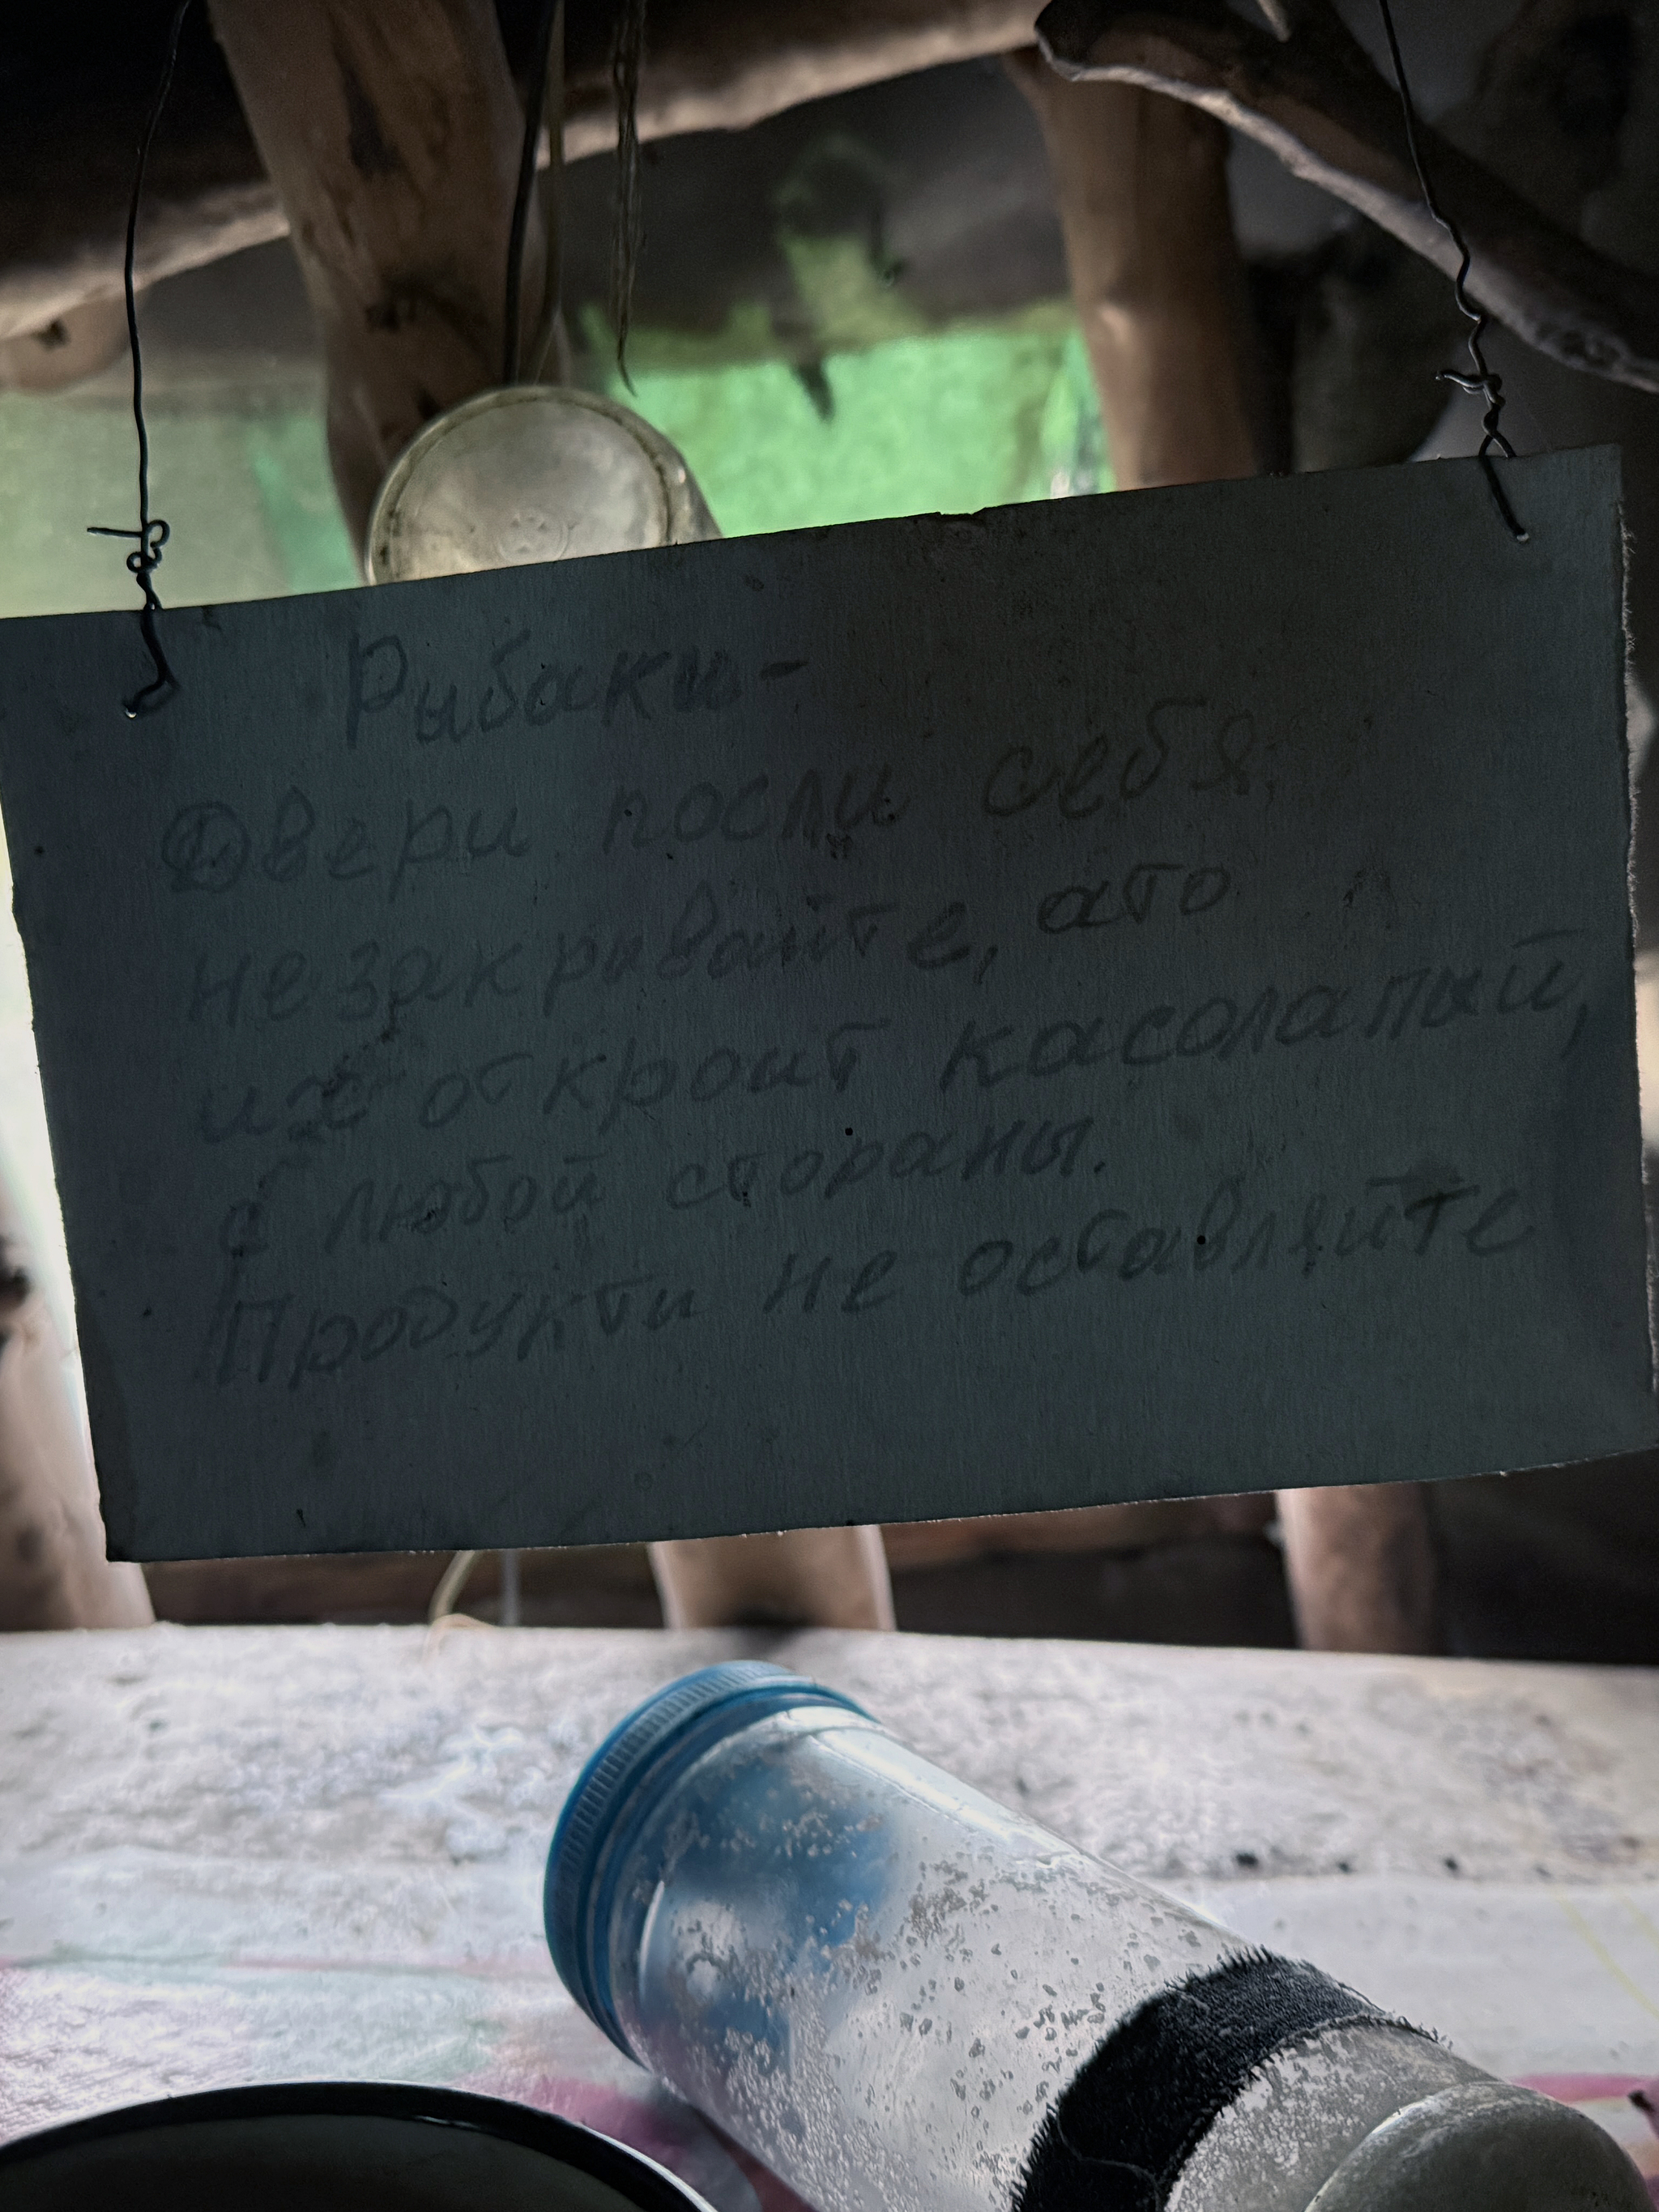 Рыбаки-
Двери посли себя
незакривайте, ато
их откроит касолапый,
с любой стораны.
Продукти не оставляйте